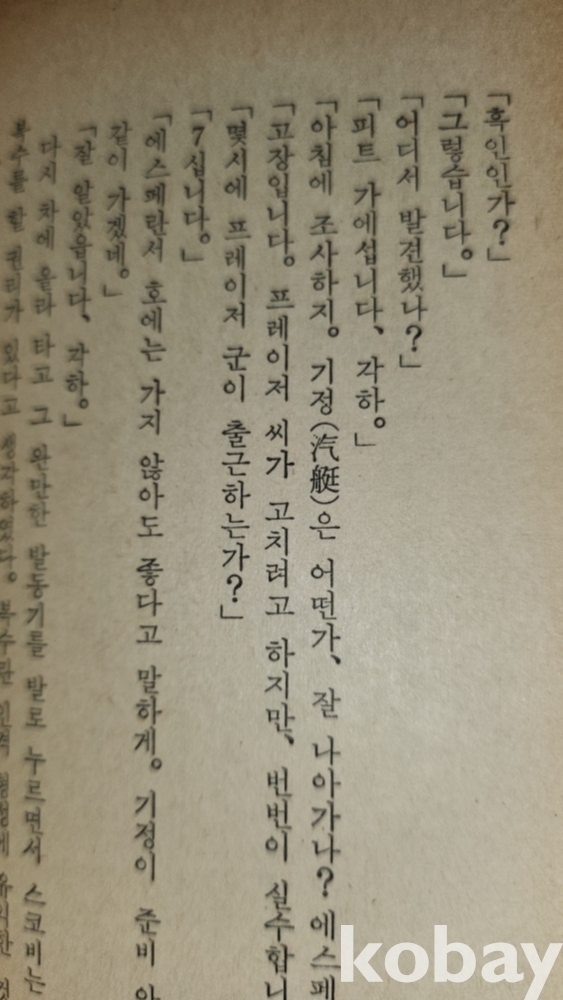 「흑인인가?」
「그렇습니다。」
「어디서 발견했나?」
「피트 가에섭니다、각하。」
「아침에 조사하지。기정(汽艇)은 어떤가、잘 나아가나? 에스페
「고장입니다。프레이저 씨가 고치려고 하지만、번번이 실수합니
「몇시에 프레이저 군이 출근하는가?」
「7십니다。」
「에스페란서 호에는 가지 않아도 좋다고 말하게。기정이 준비
같이 가겠네。」
「잘 알았읍니다、각하。」
다시 차에 올라 타고 그 완만한 발동기를 발로 누르면서 스코비는
복수를 할 권리가 있다고 생각하였다。복수란 인격
kobay